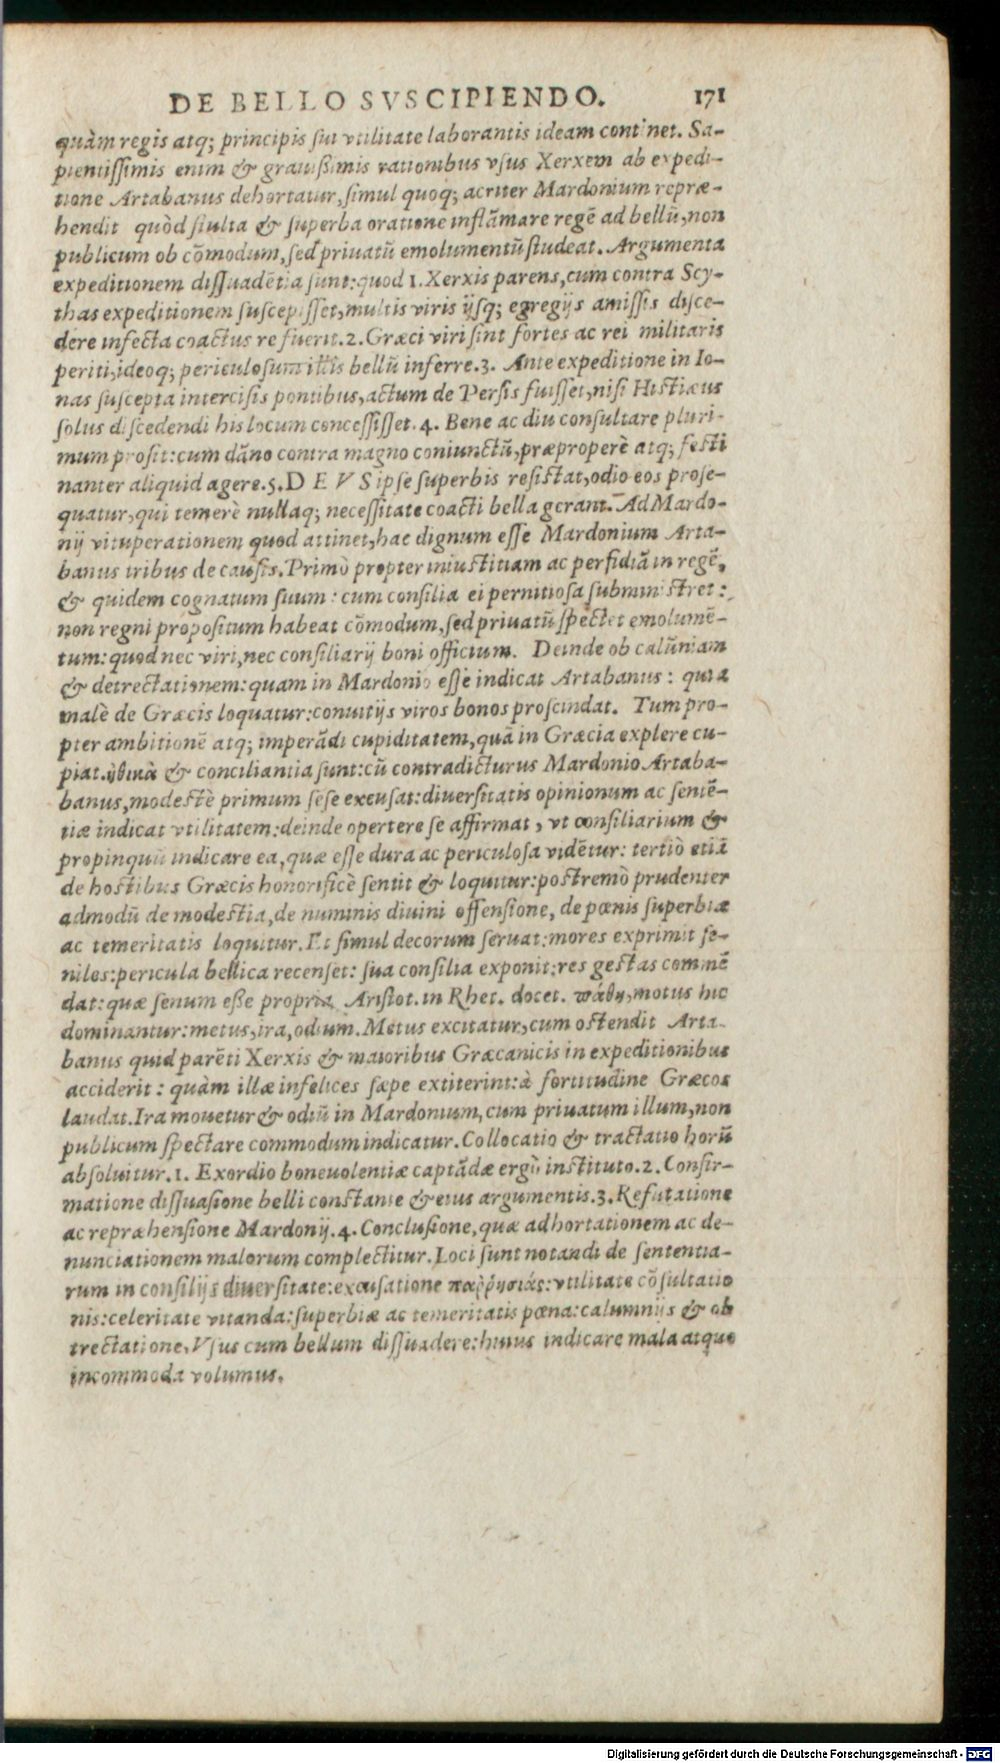 DE BELLO SVSCIPIENDO. 171
quàm regis atq; principis sui vtilitate laborantis ideam continet. Sa-
pientissimis enim & grauißimis rationibus vsus Xerxem ab expedi-
tione Artabanus dehortatur, simul quoq; acriter Mardonium repræ-
hendit quòd stulta & superba oratione inflāmare regē ad bellū, non
publicum ob cōmodum, sed priuatū emolumentū studeat. Argumenta
expeditionem dissuadētia sunt: quod 1. Xerxis parens, cum contra Scy-
thas expeditionem suscepisset, multis viris ijsq; egregijs amissis disce-
dere infecta coactus re fuerit. 2. Græci viri sint fortes ac rei militaris
periti, ideoq; periculosum illis bellū inferre. 3. Ante expeditione in Io-
nas suscepta intercisis pontibus, actum de Persis fuisset, nisi Histiæus
solus discedendi his locum concessisset. 4. Bene ac diu consultare pluri-
mum prosit: cum dāno contra magno coniunctū, præproperè atq; festi
nanter aliquid agere. 5. DEVS ipse superbis resistat, odio eos prose-
quatur, qui temerè nullaq; necessitate coacti bella gerant. Ad Mardo-
nij vituperationem quod attinet, hac dignum esse Mardonium Arta-
banus tribus de causis. Primò propter iniustitiam ac perfidiā in regē,
& quidem cognatum suum: cum consilia ei pernitiosa subministret:
non regni propositum habeat cōmodum, sed priuatū spectet emolumē-
tum: quod nec viri, nec consiliarij boni officium. Deinde ob calūniam
& detrectationem: quam in Mardonio esse indicat Artabanus: quia
malè de Græcis loquatur: conuitijs viros bonos proscindat. Tum pro-
pter ambitionē atq; imperādi cupiditatem, quā in Græcia explere cu-
piat. ἠθικὰ & conciliantia sunt: cū contradicturus Mardonio Artaba-
banus, modestè primum sese excusat: diuersitatis opinionum ac sentē-
tiæ indicat vtilitatem: deinde opertere se affirmat, vt consiliarium &
propinquū indicare ea, quæ esse dura ac periculosa vidētur: tertiò etiā
de hostibus Græcis honorificè sentit & loquitur: postremò prudenter
admodū de modestia, de numinis diuini offensione, de pœnis superbiæ
ac temeritatis loquitur. Et simul decorum seruat: mores exprimit se-
niles: pericula bellica recenset: sua consilia exponit: res gestas commē
dat: quæ senum eße propria Aristot. in Rhet. docet. πάθη, motus hic
dominantur: metus, ira, odium. Metus excitatur, cum ostendit Arta-
banus quid parēti Xerxis & maioribus Græcanicis in expeditionibus
acciderit: quàm illæ infelices sæpe extiterint: à fortitudine Græcos
laudat. Ira mouetur & odiū in Mardonium, cum priuatum illum, non
publicum spectare commodum indicatur. Collocatio & tractatio horū
absoluitur. 1. Exordio beneuolentiæ captādæ ergò instituto. 2. Confir-
matione dissuasione belli constante & eius argumentis. 3. Refutatione
ac repræhensione Mardonij. 4. Conclusione, quæ adhortationem ac de-
nunciationem malorum complectitur. Loci sunt notandi de sententia-
rum in consilijs diuersitate: excusatione παῤῥησιάς: vtilitate cōsultatio
nis: celeritate vitanda: superbiæ ac temeritatis pœna: calumnijs & ob
trectatione. Vsus cum bellum dissuadere: huius indicare mala atque
incommoda volumus.
Digitalisierung gefördert durch die Deutsche Forschungsgemeinschaft - DFG